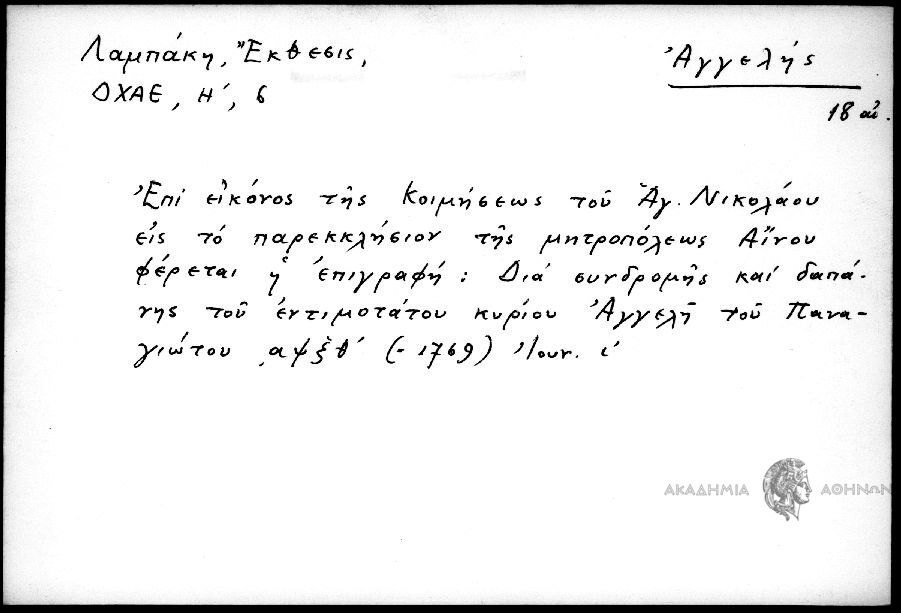 Λαμπάκη, Ἔκθεσις,
ΔΧΑΕ, Η΄, 6
Ἀγγελής
18 αἰ.
Ἐπί εἰκόνος τῆς Κοιμήσεως τοῦ Ἁγ. Νικολάου
εἰς τό παρεκκλήσιον τῆς μητροπόλεως Αἴνου
φέρεται ἡ ἐπιγραφή : Διά συνδρομῆς καί δαπά-
νης τοῦ ἐντιμοτάτου κυρίου Ἀγγελῆ τοῦ Πανα-
γιώτου ͵αψξθ΄ (= 1769) Ἰουν. ι΄
ΑΚΑΔΗΜΙΑ ΑΘΗΝΩΝ